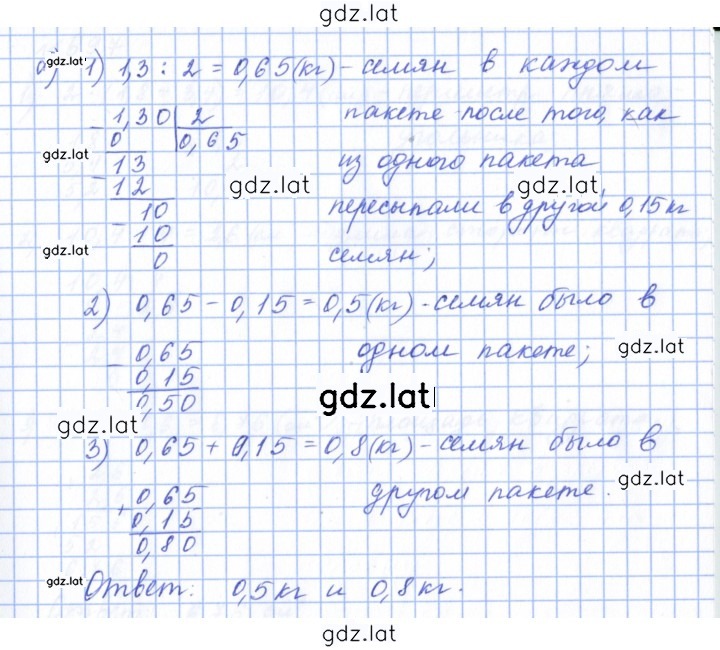 gdz.lat
gdz.lat
б) 1) 1,3 : 2 = 0,65 (кг) - семян в каждом
1,30 2 пакете после того, как
- 0 0,65
gdz.lat
13 из одного пакета
- 12 gdz.lat gdz.lat
10 пересыпали в другой 0,15 кг
- 10
gdz.lat
0 семян;
2) 0,65 - 0,15 = 0,5 (кг) - семян было в
- 0,65 одном пакете; gdz.lat
0,15
gdz.lat
0,50
gdz.lat
3) 0,65 + 0,15 = 0,8 (кг) - семян было в
gdz.lat
+ 0,65 другом пакете.
0,15
0,80
gdz.lat
Ответ: 0,5 кг и 0,8 кг.
gdz.lat